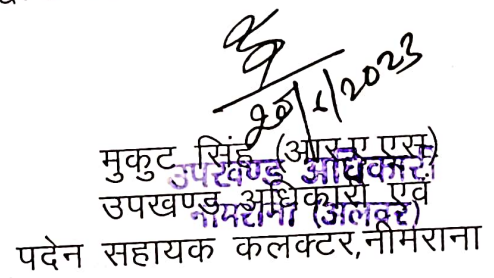 20/1/2023
मुकुट सिंह (आर.ए.एस)
उपखण्ड अधिकारी
उपखण्ड अधिकारी एवं
नीमराना (अलवर)
पदेन सहायक कलक्टर,नीमराना